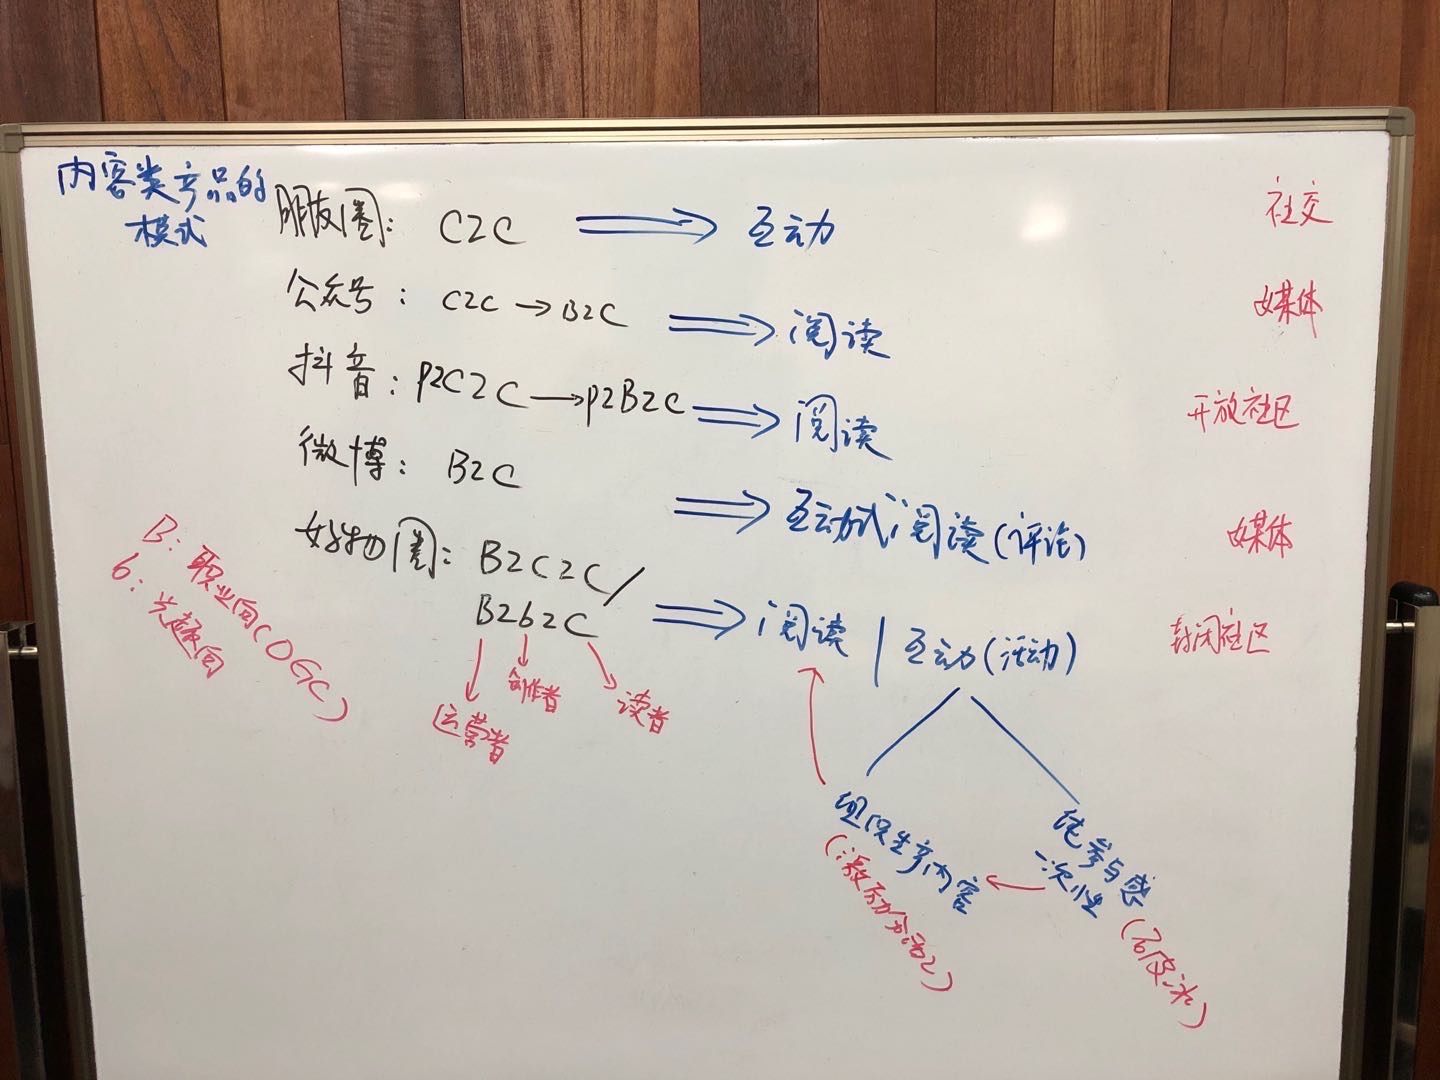 内容类产品的
模式
朋友圈： C2C ⟹ 互动 社交
公众号： C2C → B2C ⟹ 阅读 媒体
抖音： P2C2C → P2B2C ⟹ 阅读 开放社区
微博： B2C ⟹ 互动式阅读(评论) 媒体
好物圈： B2C2C /
B2b2C ⟹ 阅读 | 互动(活动) 封闭社区
B：职业向(OGC)
b：兴趣向
运营者
创作者
读者
组织生产内容
(激励分活2)
纯参与感
一次性